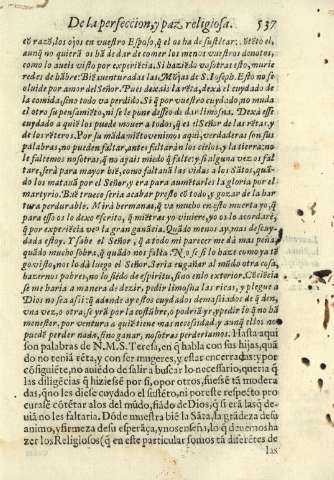 De la perfeccion, y paz religiosa. 537
cõ razõ, los ojos en vuestro Esposo, q̃ el os ha de sustẽtar. Cõtẽto el,
aunq̃ no quierã os hã de dar de comer los menos vuestros deuotos,
como lo aueis visto por experiẽcia. Si haziẽdo vosotras esto, murie
redes de hãbre: Biẽauenturadas las Mõjas de S. Ioseph. Esto no se
oluide por amor del Señor. Pues dexais la rẽta, dexã el cuydado de
la comida, sino todo va perdido. Si q̃ por vuestro cuydado, no muda
el otro su pensamiẽto, ni se le pone desseo de dar limosna. Dexã esse
cuydado a quiẽ los puede mouer a todos, q̃ es el Señor de las rẽtas, y
de los rẽteros. Por su mãdamiẽto venimos aqui, verdaderas son sus
palabras, no pueden faltar, antes faltarãn los cielos, y la tierra: no
le faltemos nosotras, q̃ no ayais miedo q̃ falte: y si alguna vez os fal
tare, serà para mayor biẽ, como faltauã las vidas a los Sãtos, quã-
do los matauã por el Señor, y era para aumẽtarles la gloria por el
martyrio. Buẽ trueco seria acabar presto cõ todo, y gozar de la har
tura perdurable. Mirã hermanas, q̃ va mucho en esto muerta yo, q̃
para esso os lo dexo escrito, q̃ miẽtras yo viuiere, yo os lo acordarè,
q̃ por experiẽcia veo la gran ganãcia. Quãdo menos ay, mas descuy
dada estoy. Y sabe el Señor, q̃ a todo mi parecer me dà mas pena,
quãdo mucho sobra, q̃ quãdo nos falta. No se si lo haze como ya tẽ
go visto, nos lo dà luego el Señor. Seria engañar al mũdo otra cosa,
hazernos pobres, no lo siẽdo de espiritu, sino en lo exterior. Cõciẽcia
se me haria a manera de dezir, pedir limosna las ricas, y plegue a
Dios no sea assi: q̃ adonde ay estos cuydados demasiados de q̃ den,
vna vez, o otra, se yrã por la costũbre, o podriã yr, y pedir lo q̃ no hã
menester, por ventura a quiẽ tiene mas necessidad. y aunq̃ ellos no
puedẽ perder nada, sino ganar, nosotras perderiamos. Hasta aqui
son palabras de N. M. S. Teresa, en q̃ habla con sus hijas, quã
do no teniã rẽta, y con ser mugeres, y estar encerradas: y por
cõsiguiẽte, no auiẽdo de salir a buscar lo necessario, queria q̃
las diligẽcias q̃ hiziessẽ por si, o por otros, fuessẽ tã modera
das, q̃ no les diesse cuydado el sustẽto, ni por este respecto pro
curassẽ cõtẽtar a los del mũdo, fiãdo de Dios, q̃ si erã las q̃ de-
uiã no les faltaria. Dõde muestra biẽ la Sãta, la grãdeza de su
animo, y firmeza de su esperãça, y nos enseña, lo q̃ deuemos ha
zer los Religiosos (q̃ en este particular somos tã diferẽtes de
las